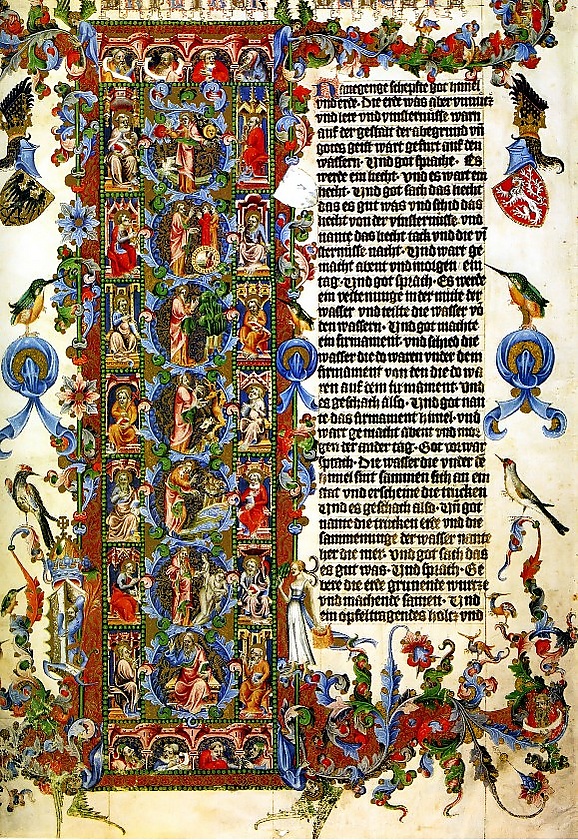 Anegenge schepfte got himel
vnd erde. Die erde was aber vnnucz
vnd lere vnd vinsternusse warn
auf der gestalt der abegrund vn
gotes geist wart gefurt auf den
wassern. Vnd got sprache. Es
werde ein liecht. vnd es wart ein
liecht. Vnd got sach das liecht
das es gut was vnd schid das
liecht von der vinsternusse. vnd
nante das liecht tack vnd die vi
sternusse nacht. Vnd wart ge
macht abent vnd morgen. ein
tag. Vnd got sprach. Es werde
ein vestenunge in der mitte der
wasser vnd teilte die wasser vo
den wassern. Vnd got machte
ein firmament. vnd schied die
wasser die do waren vnder dem
firmament von den die do wa
ren auf dem firmament. Vnd
es geschach also. Vnd got nan
te das firmament himel. vnd
wart gemacht abent vnd mor
gen der ander tag. Got vorwar
sprach. Die wasser die vnder de
himel sint sammen sich an ein
stat vnd erscheine die trucken
Vnd es geschach also. Vn got
nante die trucken erde vnd die
sammenunge der wasser nante
her die mer. Vnd got sach das
es gut was. Vnd sprach. Ge
bere die erde grunende wurcze
vnd machende samen. Vnd
ein opfeltragendes holcz vnd